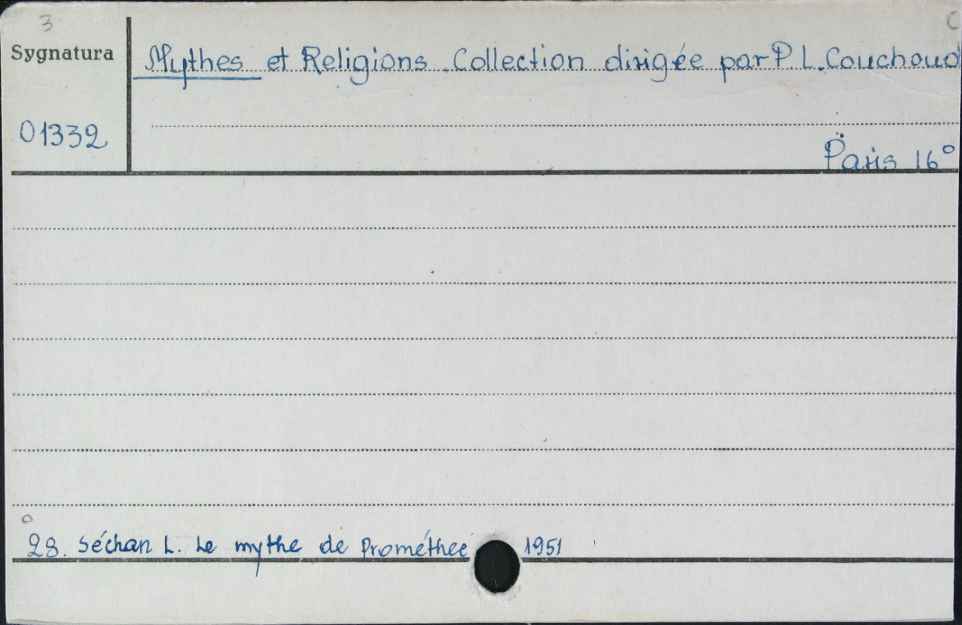 3 C
Sygnatura
Mythes et Religions. Collection dirigée par P. L. Couchoud
01332
Paris 16°
28. Séchan L. Le mythe de Prométhee 1951